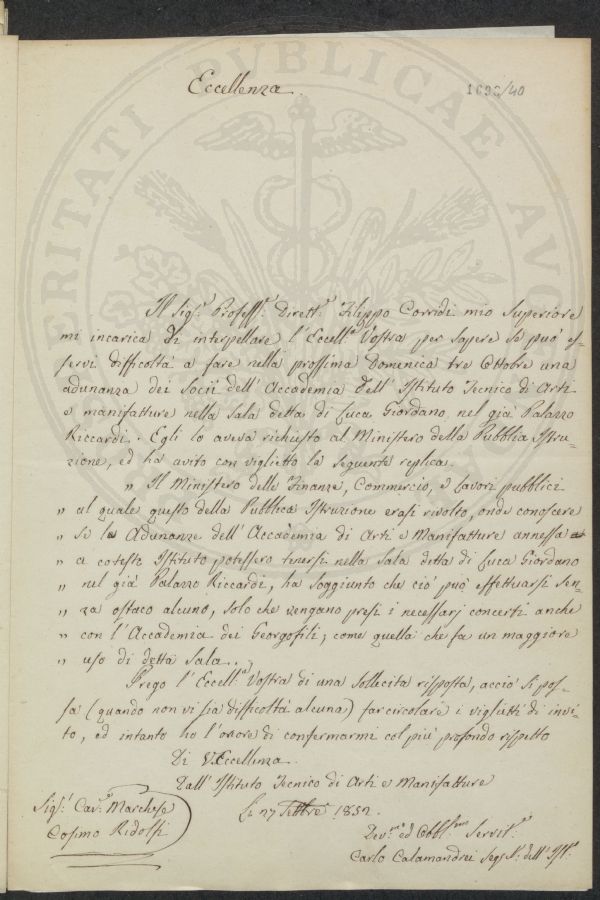 Eccellenza.
1692/40
Il Sig.r Profess.r Dirett.e Filippo Corridi mio Superiore
mi incarica di interpellare l'Eccell.a Vostra per sapere se può es=
servi difficoltà a fare nella prossima Domenica tre Ottobre una
adunanza dei Socii dell'Accademia dell'Istituto Tecnico di Arti
e manifatture nella Sala detta di Luca Giordano nel già Palazzo
Riccardi. Egli lo aveva richiesto al Ministero della Pubblica Istru=
zione, ed ha avuto con viglietto la seguente replica.
" Il Ministero delle Finanze, Commercio, e Lavori pubblici
" al quale questo della Pubblica Istruzione erasi rivolto, onde conoscere
" se le Adunanze dell'Accademia di Arti e Manifatture annessa
" a cotesto Istituto potessero tenersi nella Sala detta di Luca Giordano
" nel già Palazzo Riccardi, ha soggiunto che ciò può effettuarsi sen=
" za ostaco alcuno, solo che vengano presi i necessarj concerti anche
" con l'Accademia dei Georgofili, come quella che fa un maggiore
" uso di detta Sala. "
Prego l'Eccell.a Vostra di una sollecita risposta, acciò si pos=
sa (quando non vi sia difficoltà alcuna) far circolare i viglietti di invi=
to, ed intanto ho l'onore di confermarmi col più profondo rispetto
Di V. Eccellenza
Dall'Istituto Tecnico di Arti e Manifatture
Li 27 Settbre 1852.
Sig.r Cav.e Marchese
Cosimo Ridolfi
Dev.mo ed Obbl.mo Servit.e
Carlo Calamandrei Seg.o dell'Ist.o
VERITATI PUBLICAE